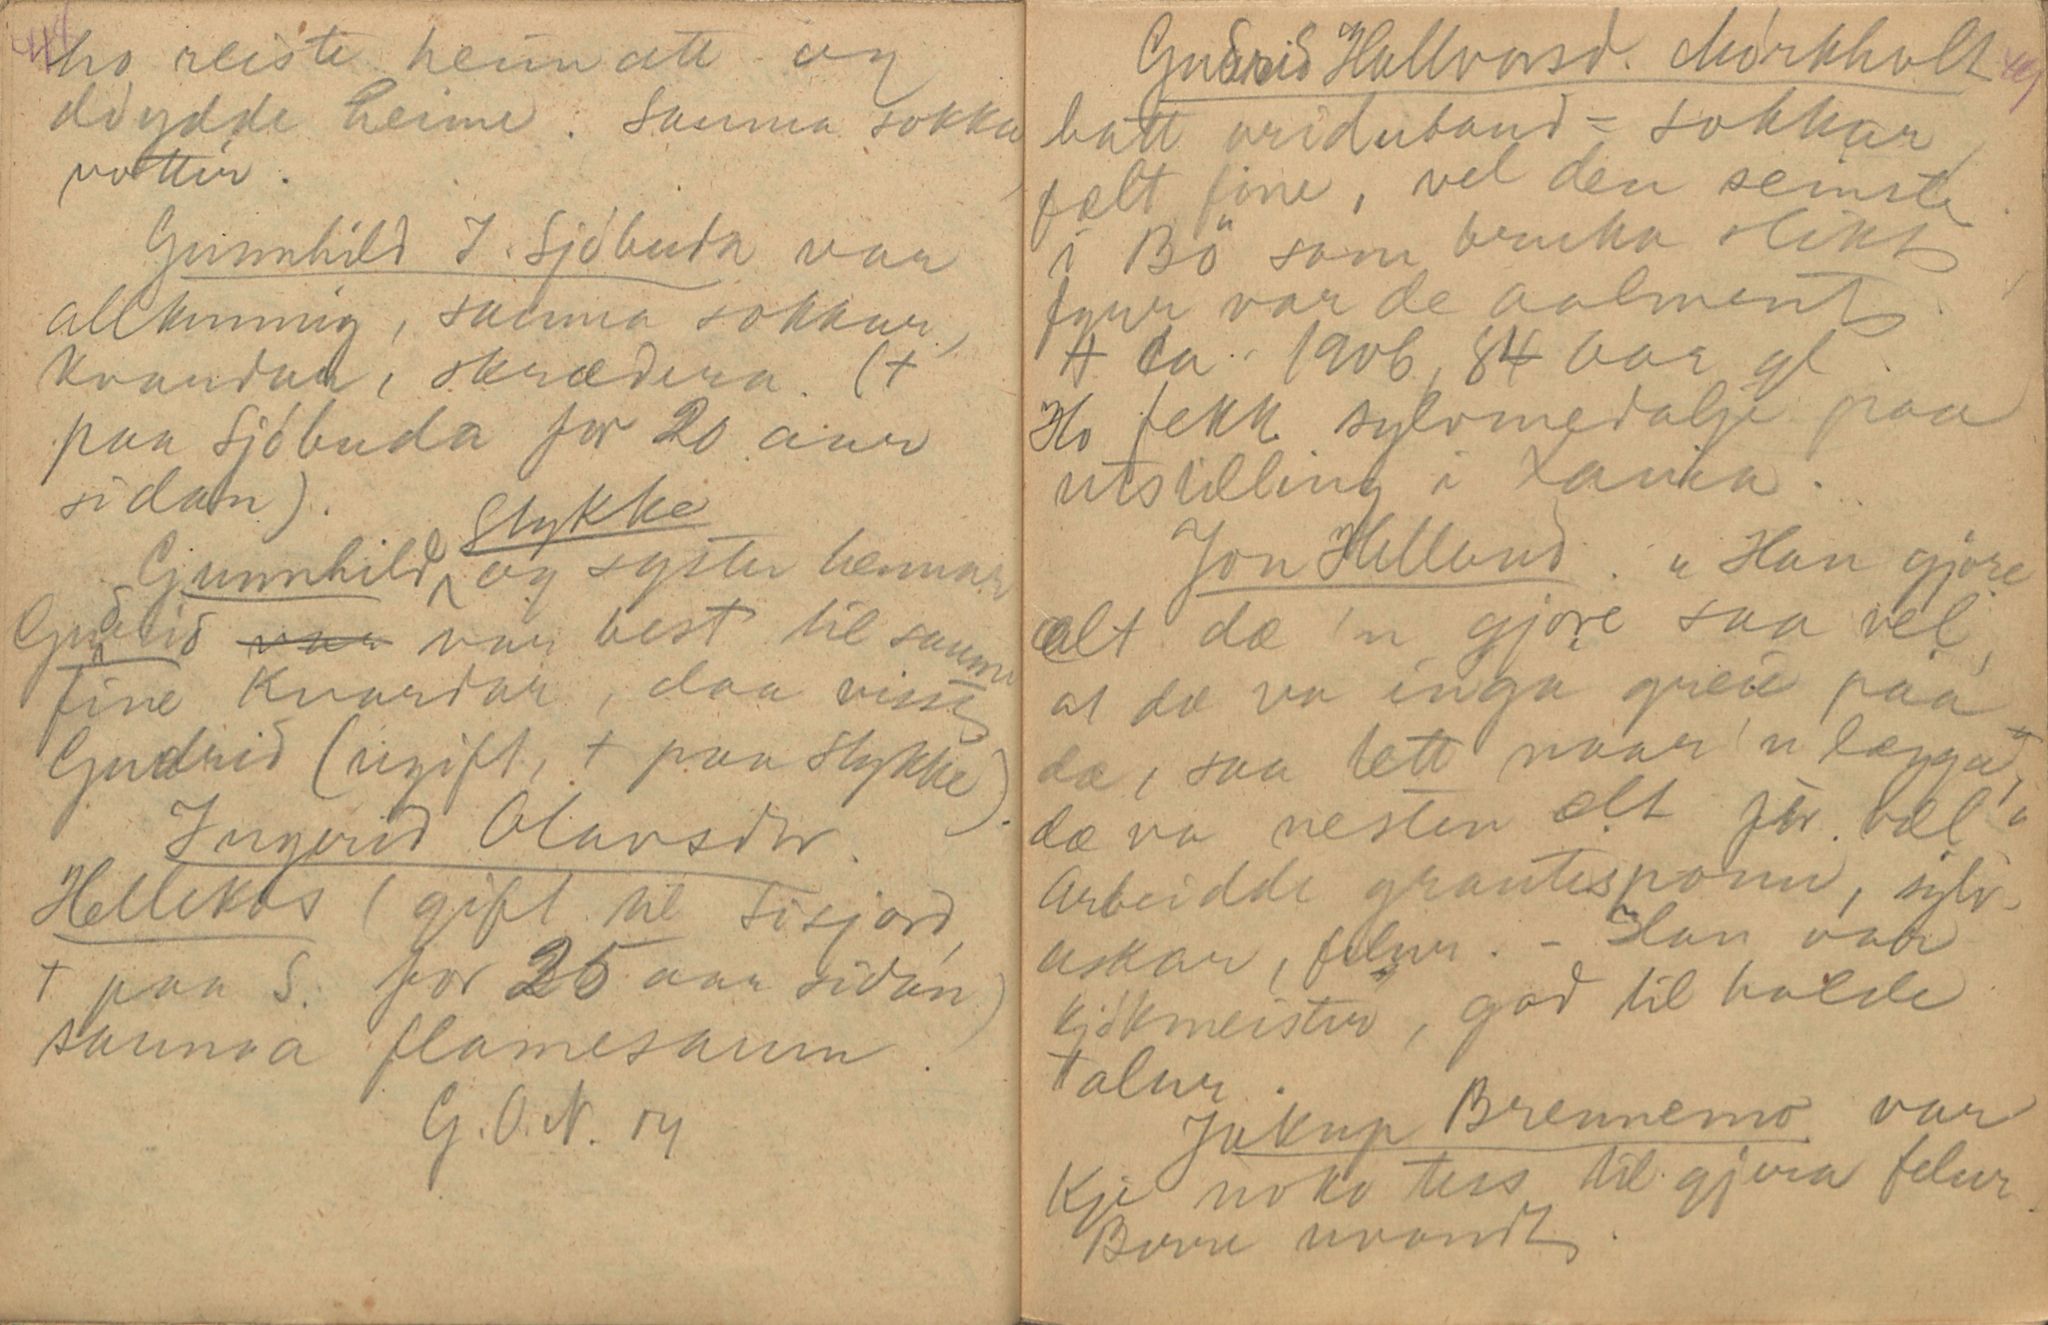 44
ho reiste heimatt og
døydde heime. Sauma sokka,
vottir.
Gunnhild J. Sjóbuda var
allkunnig, sauma sokkar,
kvardar, skrædera. (+
paa Sjóbuda for 20 aar
sidan).
Gunnhild Stykke og syster hennar
Gudrid var var best til sauma
fine kvardar, daa visst
Gudrid (ugift, + paa Stykke).
Ingerid Olavsdtr.
Hellekås (gift til Sisjord,
+ paa S. for 25 aar sidan)
sauma flamesaum.
G.O.N. og
Gudrid Hallvorsd. Mørkholt
batt vriduband = sokkar,
fælt fine, vel den seinste
i Bö som bruka slikt
fyrr var de aalment
+ ca. 1906, 84 aar gl.
Ho fekk sylvmedalje paa
utstilling i
Jon Helland. "Han gjøre
alt dæ 'n gjøre saa vel,
at dæ va inga greie paa
dæ, saa lett naar 'n lægga,
dæ va nesten ælt før væl"
Arbeidde grautesponn, sylv-
askar, felur. - Han var
kjökmeister, god til halde
talur.
Jakup Brennemo var
kje noko tess til gjera felur
Borre uvandt.